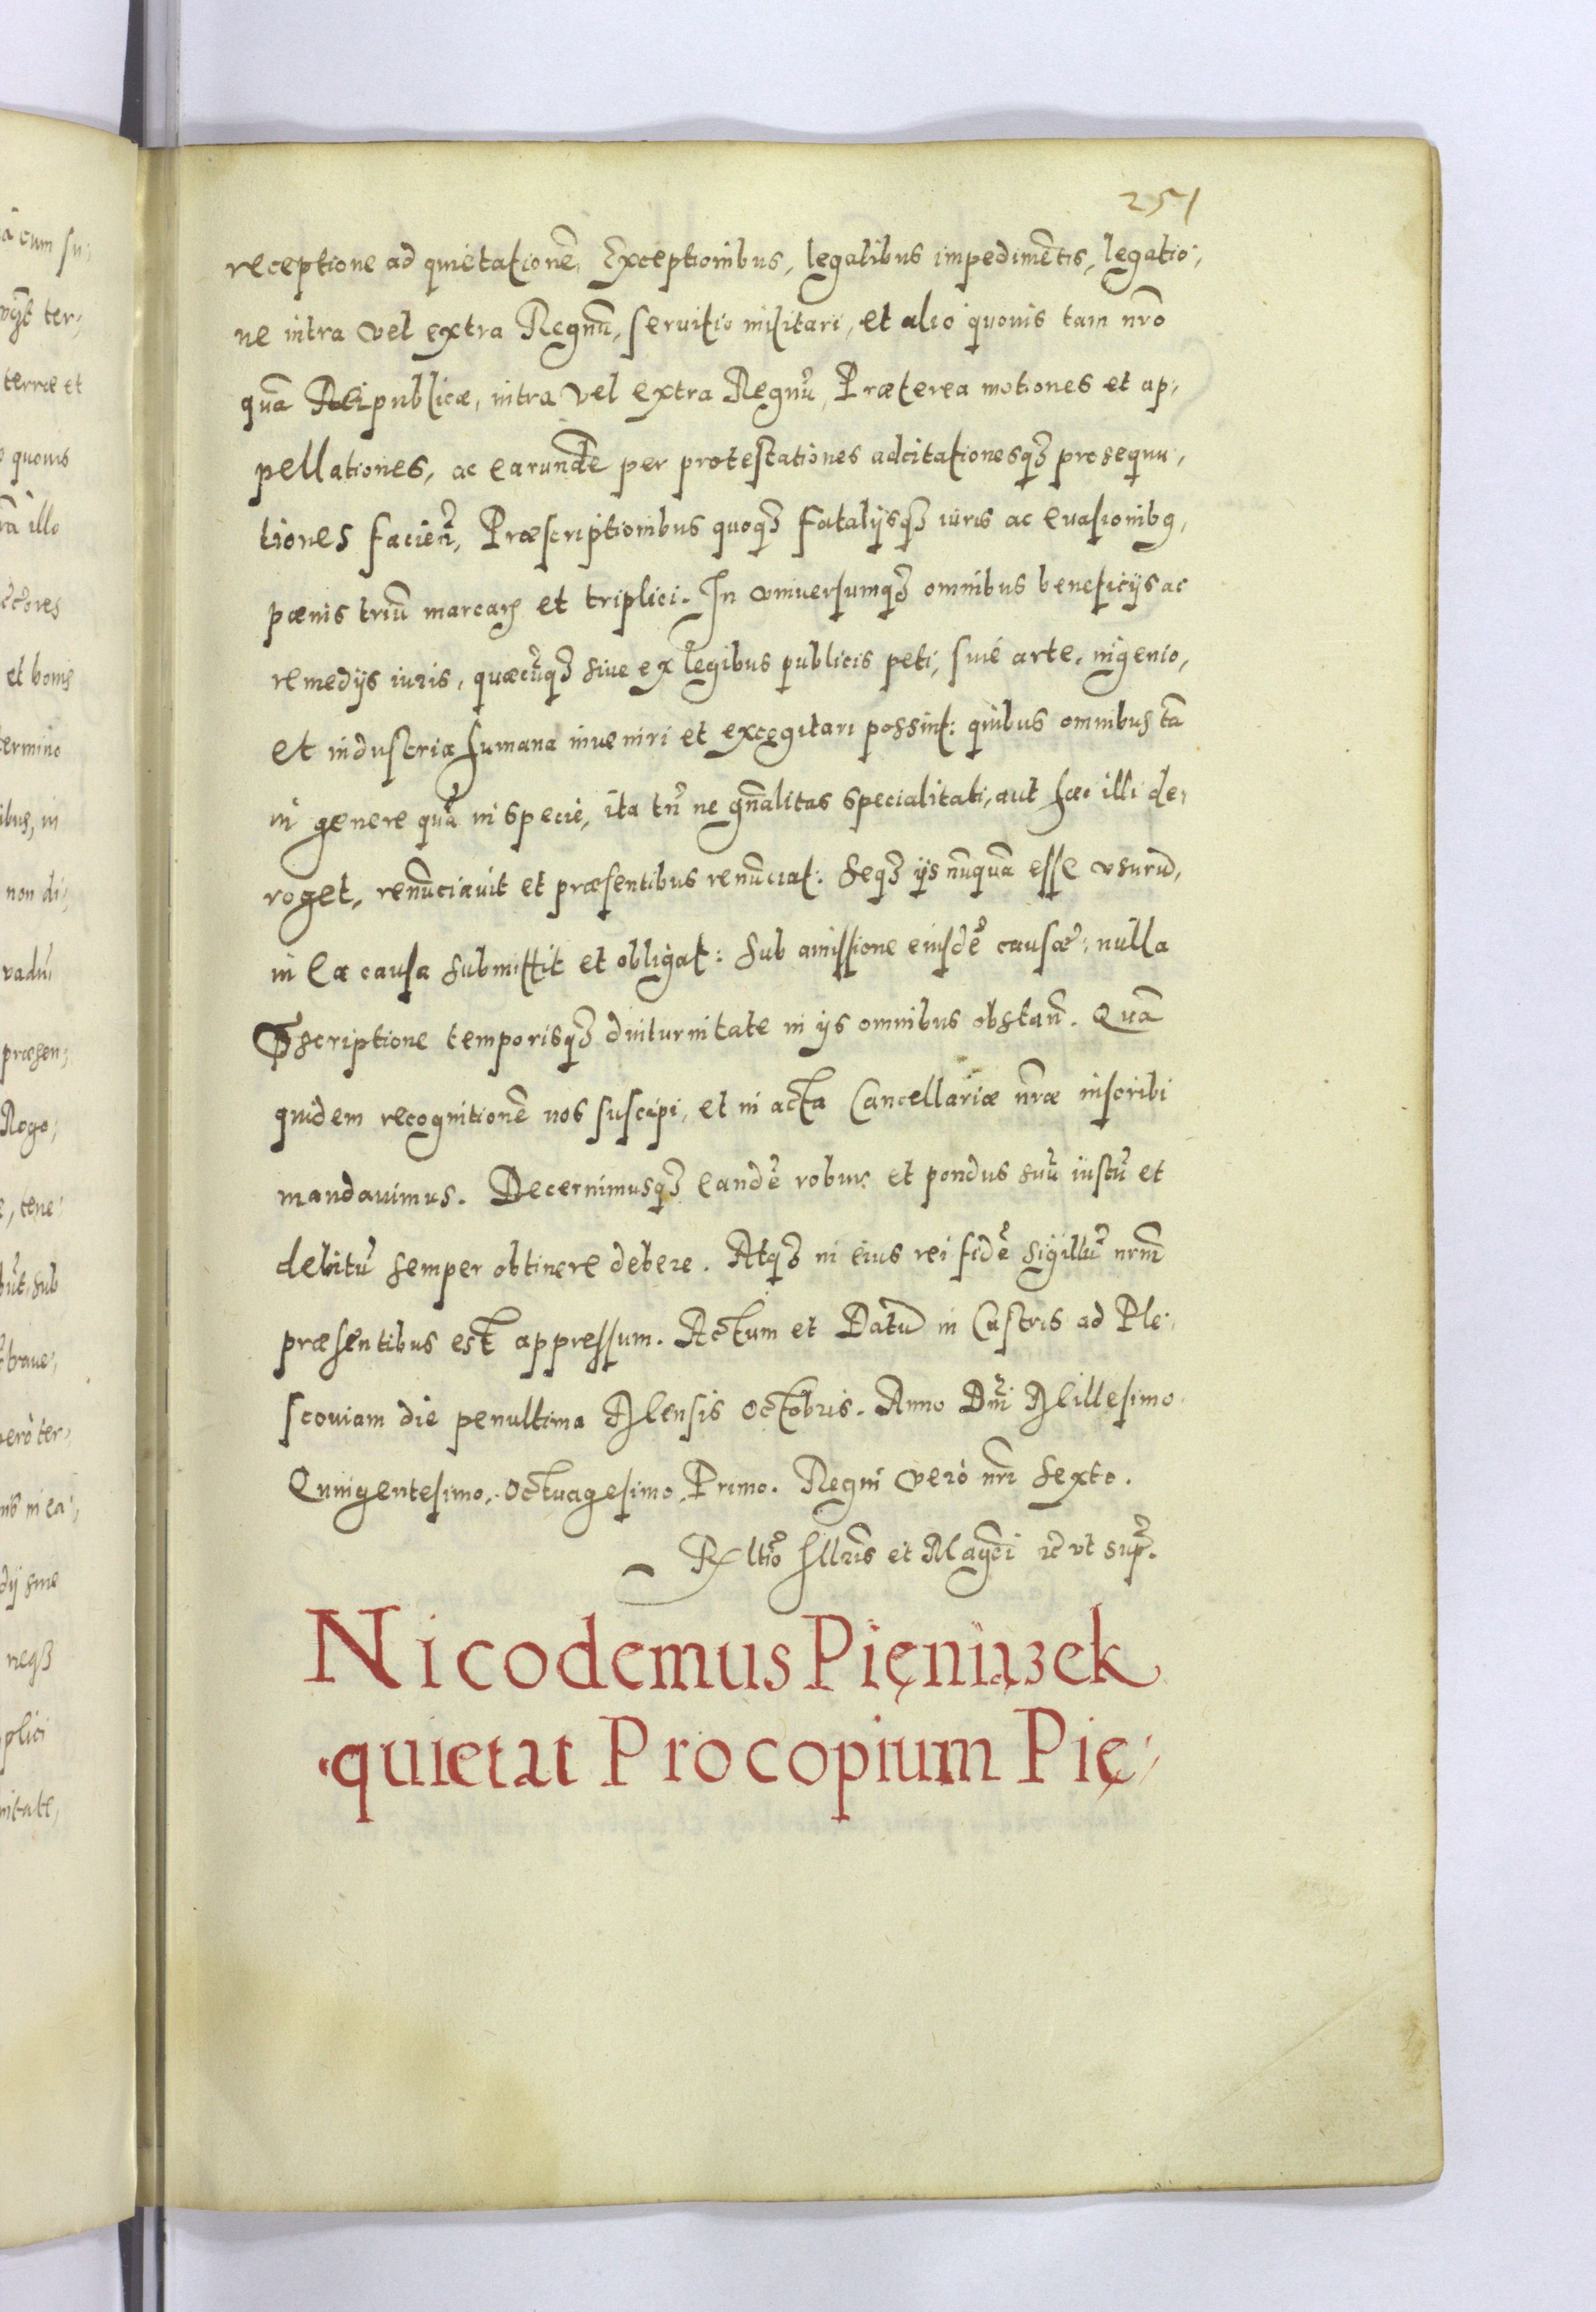 251
receptione ad quietationē, Exceptionibus, legalibus impedimētis, legatio,
ne intra vel extra Regnū, servitio militari, et alio quovis tam nr̄o
quā Reipublicæ, intra vel extra Regnū, Præterea motiones et ap,
pellationes, ac earundē per protestationes adcitationesqꝫ prosequu,
tiones facien̄, Præscriptionibus quoqꝫ fatalijsqꝫ iuris ac evasionibꝫ,
pœnis triū marcarꝝ et triplici. In universumqꝫ omnibus beneficijs ac
remedijs iuris, quæcūqꝫ sive ex legibus publicis peti, sive arte, ingenio,
et industria humana inveniri et excogitari possint: quibus omnibus tā
in genere quā in specie, ita tn̄ ne gn̄alitas specialitati, aut hæc illi de,
roget, renūciavit et præsentibus renūciat: Seqꝫ ijs nūquā esse usurū,
in ea causa submittit et obligat: Sub amissione eiusdē causæ: nulla
Pscriptione temporisqꝫ diuturnitate in ijs omnibus obstan̄. Quā
quidem recognitionē nos suscepi, et in acta Cancellariæ nr̄æ inscribi
mandavimus. Decernimusqꝫ eandē robur et pondus suū iustū et
debitū semper obtinere debere. Atqꝫ in eius rei fidē sigillū nr̄m
præsentibus est appressum. Actum et Datū in Castris ad Ple,
scoviam die penultima Mensis Octobris. Anno Dn̄i Millesimo
Quingentesimo, Octuagesimo, Primo. Regni verò nr̄i Sexto.
Rltio Illr̄is et Mag̃ci ꝛc̄ ut sup̄.
Nicodemus Pieniązek
quietat Procopium Pię,